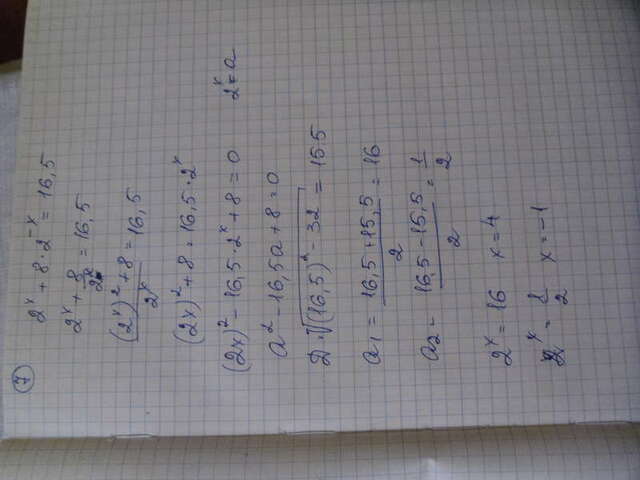 7
2^x + 8 · 2^-x = 16,5
2^x + 8/2^x = 16,5
((2^x)^2 + 8)/2^x = 16,5
(2x)^2 + 8 = 16,5 · 2^x
(2x)^2 - 16,5 · 2^x + 8 = 0    2^x = a
a^2 - 16,5a + 8 = 0
D = √((16,5)^2 - 32) = 155
a1 = (16,5 + 15,5)/2 = 16
a2 = (16,5 - 15,5)/2 = 1/2
2^x = 16    x = 4
2^x = 1/2    x = -1